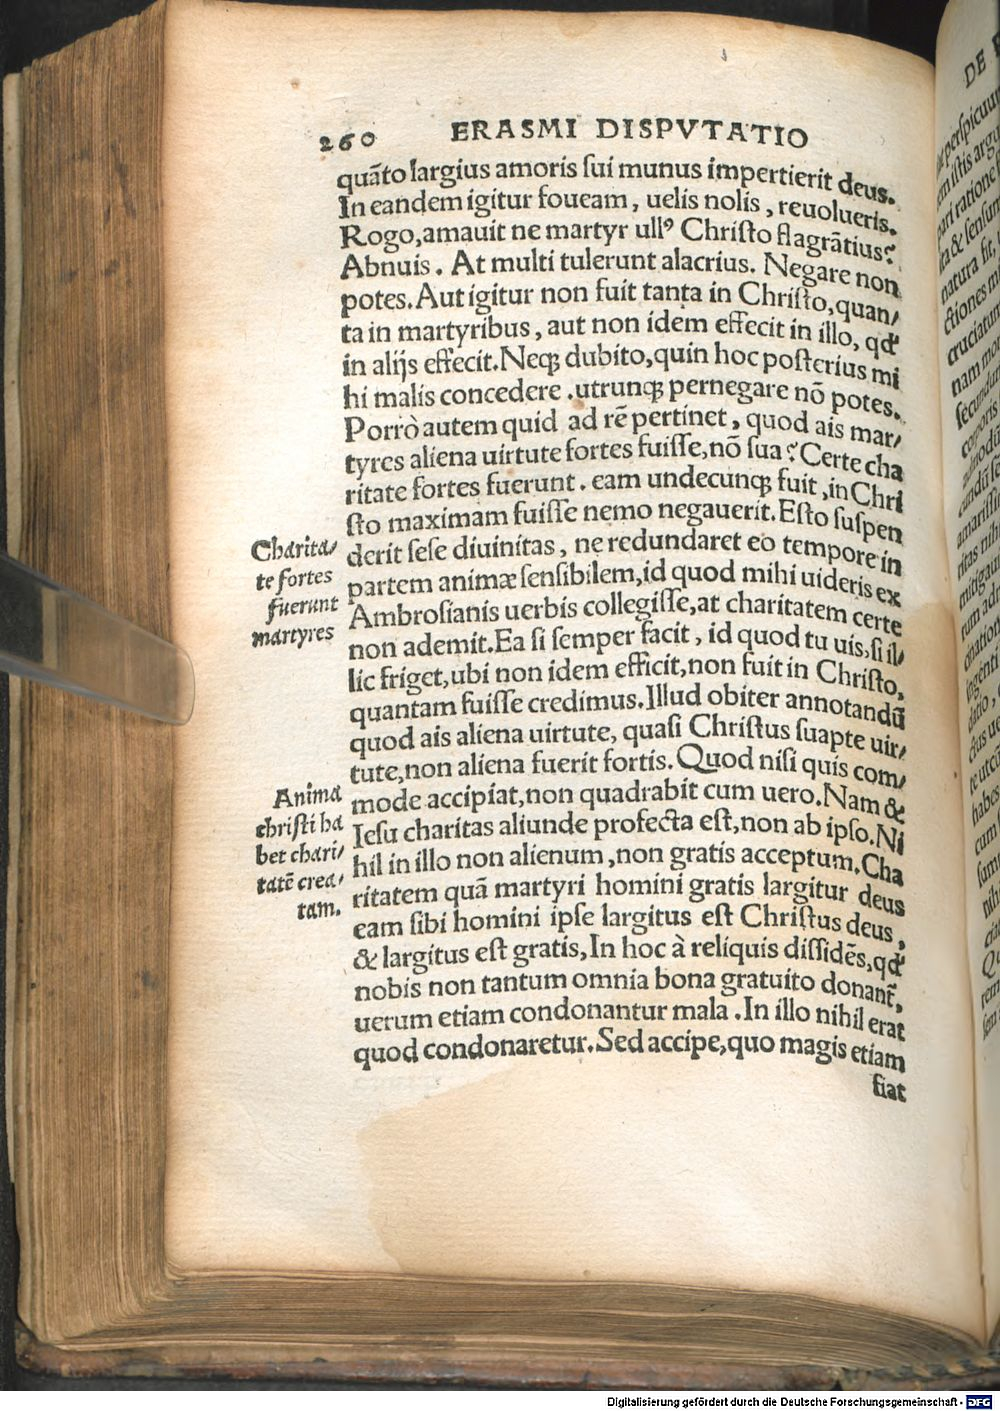 260 ERASMI DISPVTATIO
quãto largius amoris sui munus impertierit deus.
In eandem igitur foueam, uelis nolis, reuolueris.
Rogo, amauit ne martyr ullꝰ Christo flagrãtius?
Abnuis. At multi tulerunt alacrius. Negare non
potes. Aut igitur non fuit tanta in Christo, quan/
ta in martyribus, aut non idem effecit in illo, qđ
in alijs effecit. Neqꝫ dubito, quin hoc posterius mi
hi malis concedere. utrunqꝫ pernegare nõ potes.
Porrò autem quid ad rẽ pertinet, quod ais mar/
tyres aliena uirtute fortes fuisse, nõ sua? Certe cha
ritate fortes fuerunt. eam undecunqꝫ fuit, in Chri
sto maximam fuisse nemo negauerit. Esto suspen
derit sese diuinitas, ne redundaret eo tempore in
partem animæ sensibilem, id quod mihi uideris ex
Ambrosianis uerbis collegisse, at charitatem certe
non ademit. Ea si semper facit, id quod tu uis, si il/
lic friget, ubi non idem efficit, non fuit in Christo,
quantam fuisse credimus. Illud obiter annotandũ
quod ais aliena uirtute, quasi Christus suapte uir/
tute, non aliena fuerit fortis. Quod nisi quis com/
mode accipiat, non quadrabit cum uero. Nam &
Iesu charitas aliunde profecta est, non ab ipso. Ni
hil in illo non alienum, non gratis acceptum. Cha
ritatem quã martyri homini gratis largitur deus
eam sibi homini ipse largitus est Christus deus,
& largitus est gratis, In hoc à reliquis dissidẽs, qđ
nobis non tantum omnia bona gratuito donant̃,
uerum etiam condonantur mala. In illo nihil erat
quod condonaretur. Sed accipe, quo magis etiam
fiat
Charita/
te fortes
fuerunt
martyres
Anima
christi ha
bet chari/
tatẽ crea/
tam.
DE
Digitalisierung gefördert durch die Deutsche Forschungsgemeinschaft - DFG